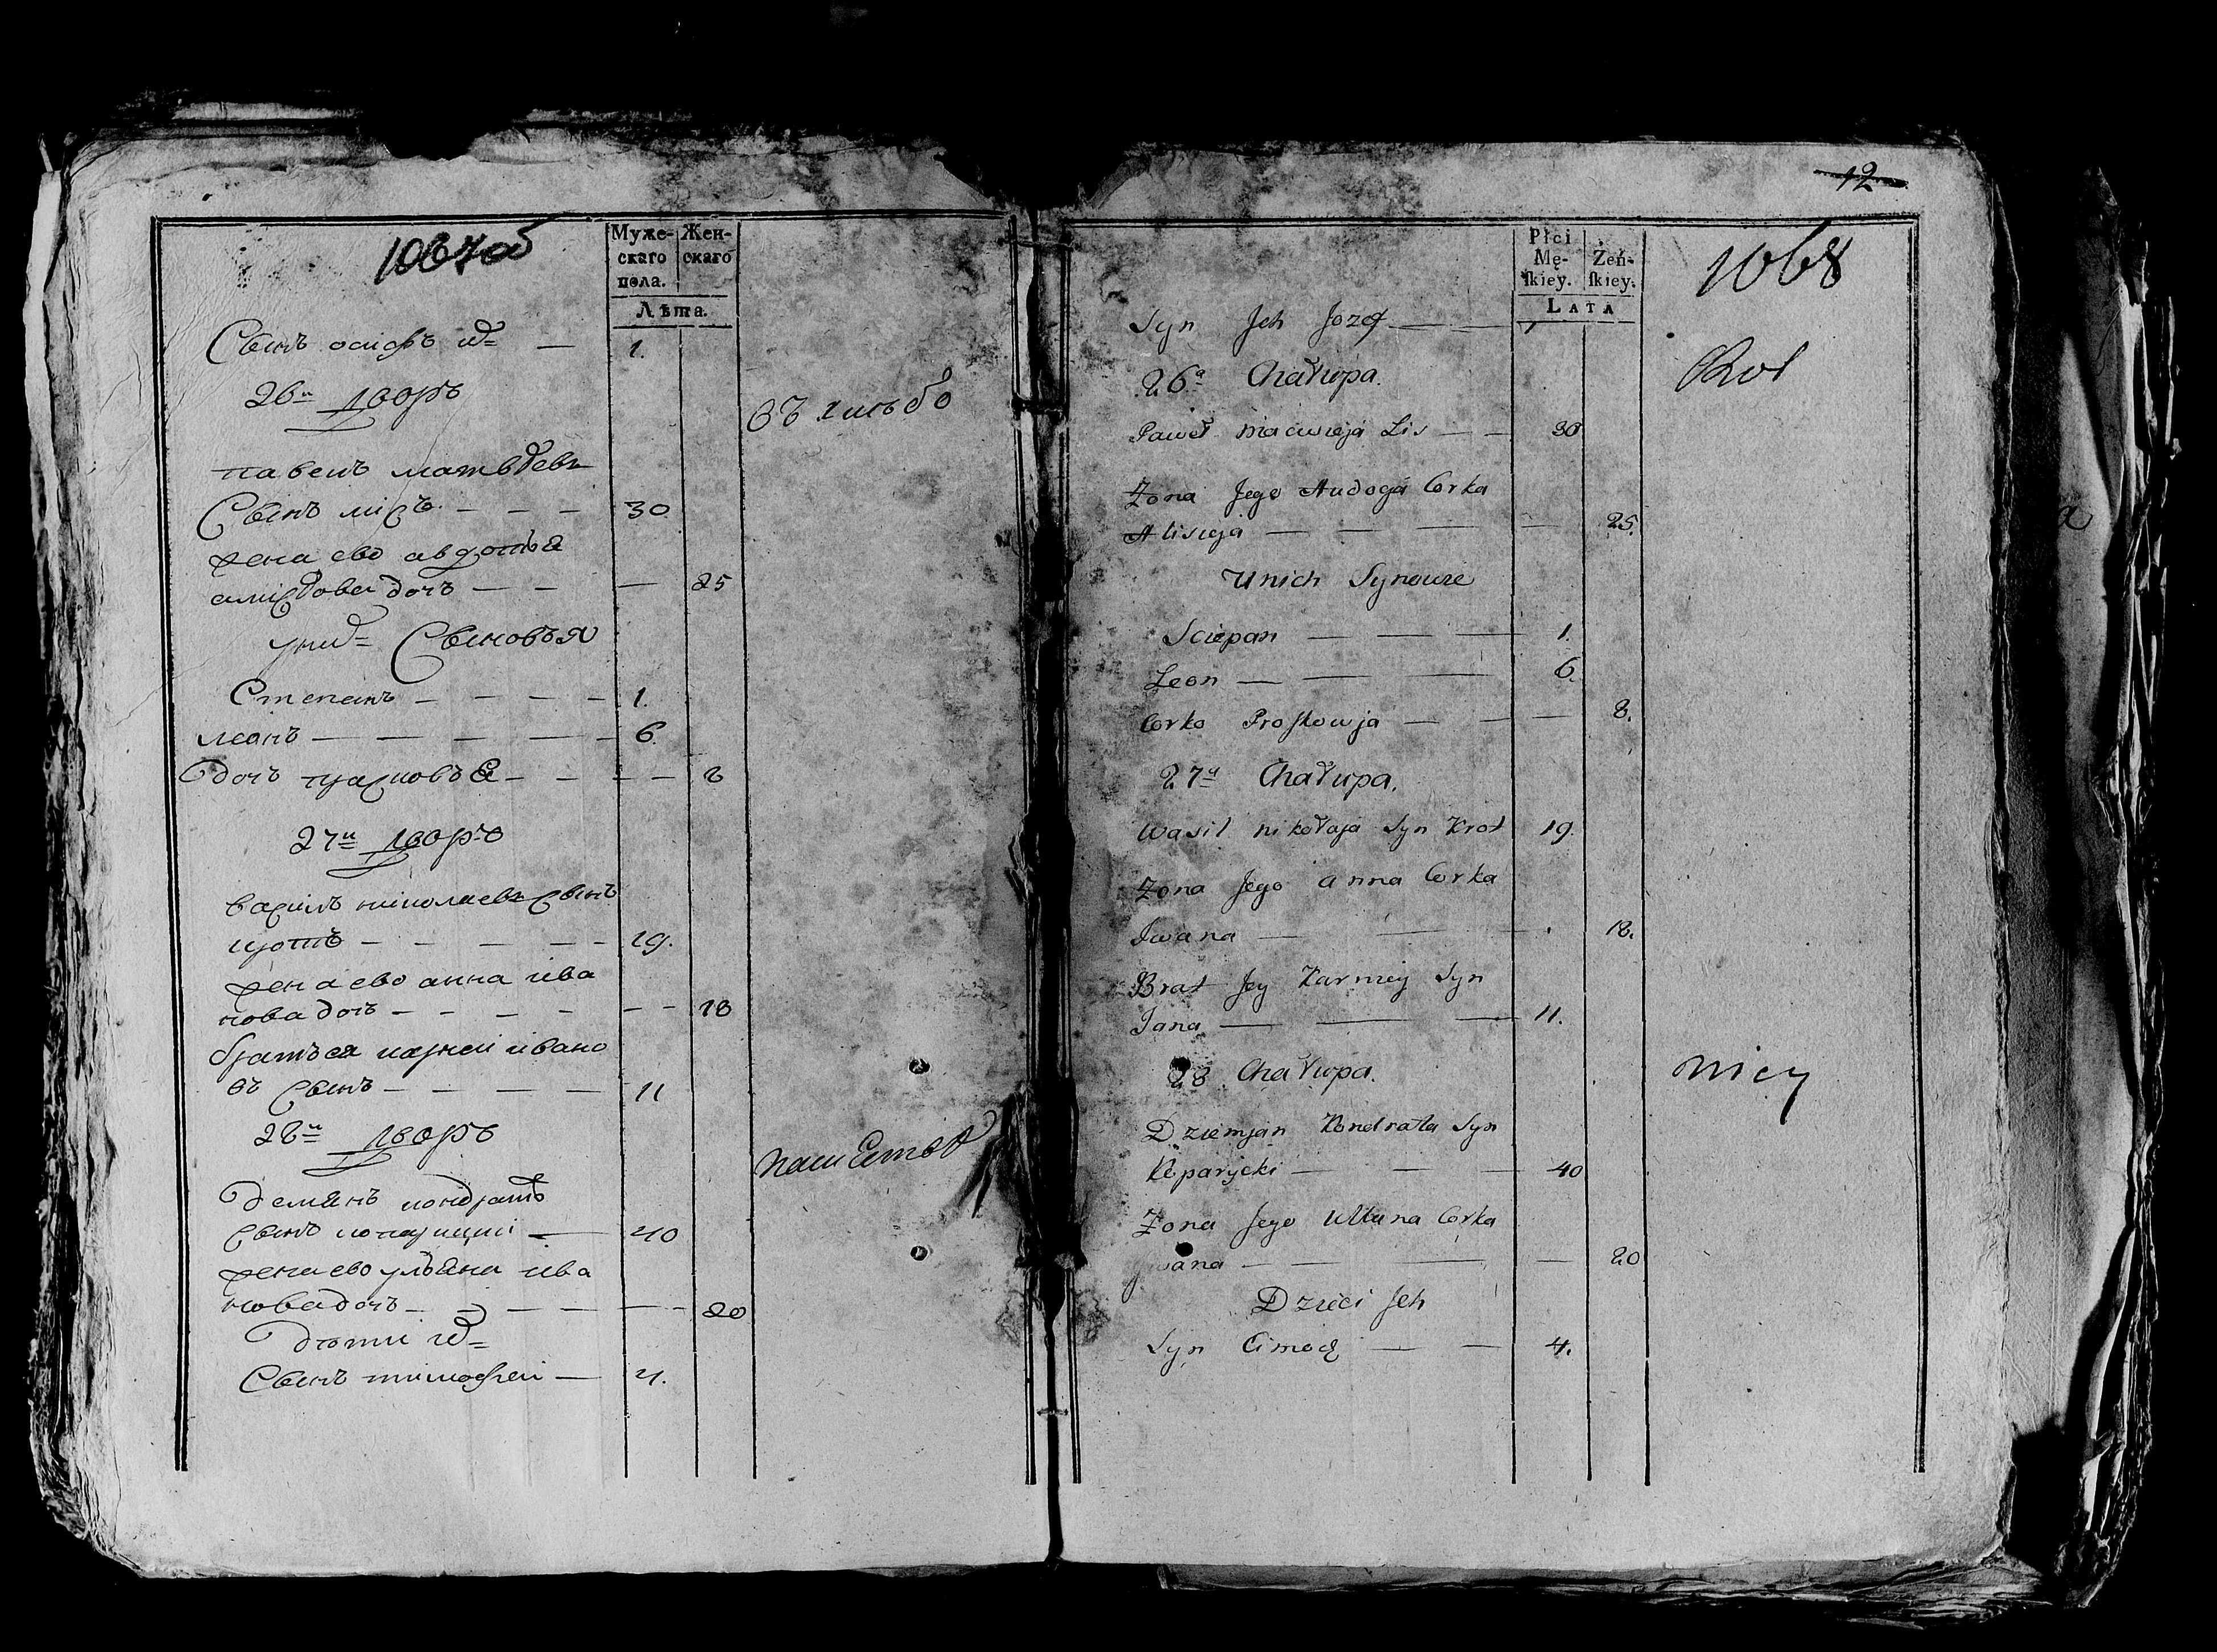 1067об
Муже-
скаго
пола.
Жен-
скаго
Лѣта.
Сынъ осифъ их= — 1.
26й дворъ
въ хлѣбо
павелъ матвѣевъ
Сынъ лисъ — — — 30.
жена ево авдотья
алисѣова дочь — — — 25
у них= Сыновья
Степанъ — — — — 1.
леонъ — — — — — 6.
дочь прасковья — — — — 8
27й дворъ
василь николаевъ сынъ
кротъ — — — — — 19.
жена ево анна ива
нова дочь — — — — — — — 18
братъ ея карней ивано
въ сынъ — — — — 11
28й дворъ
демьянъ кондратъ
сынъ копарицкі — 40
жена ево ульяна ива
нова дочь — — — — — — 20
дѣти их=
Сынъ тимофей — 4.
12
1068
Płci
Mę-
ſkiey.
Żeń-
ſkiey.
LATA
Syn Jch Jozef — — 1
26a Chałupa.
Paweł Macwieja Lis — — 30
Żona Jego Audogá Corka
Alisieja — — — — — 25.
Unich Synowie
Sciepan — — — 1.
Leon — — — 6.
Corko Proſkowja — — — 8.
27a Chałupa.
Wasil nikołaja Syn Krot 19.
Żona Jego anna Corka
Jwana — — — 18.
Brat Jey Karniey Syn
Jana — — — 11.
28 Chałupa.
Dziemjan Kondrata Syn
Koparycki — — — 40
Żona Jego Ullana Corka
Jwana — — — — 20
Dzieci Jch
Syn Cimoch — — 4.